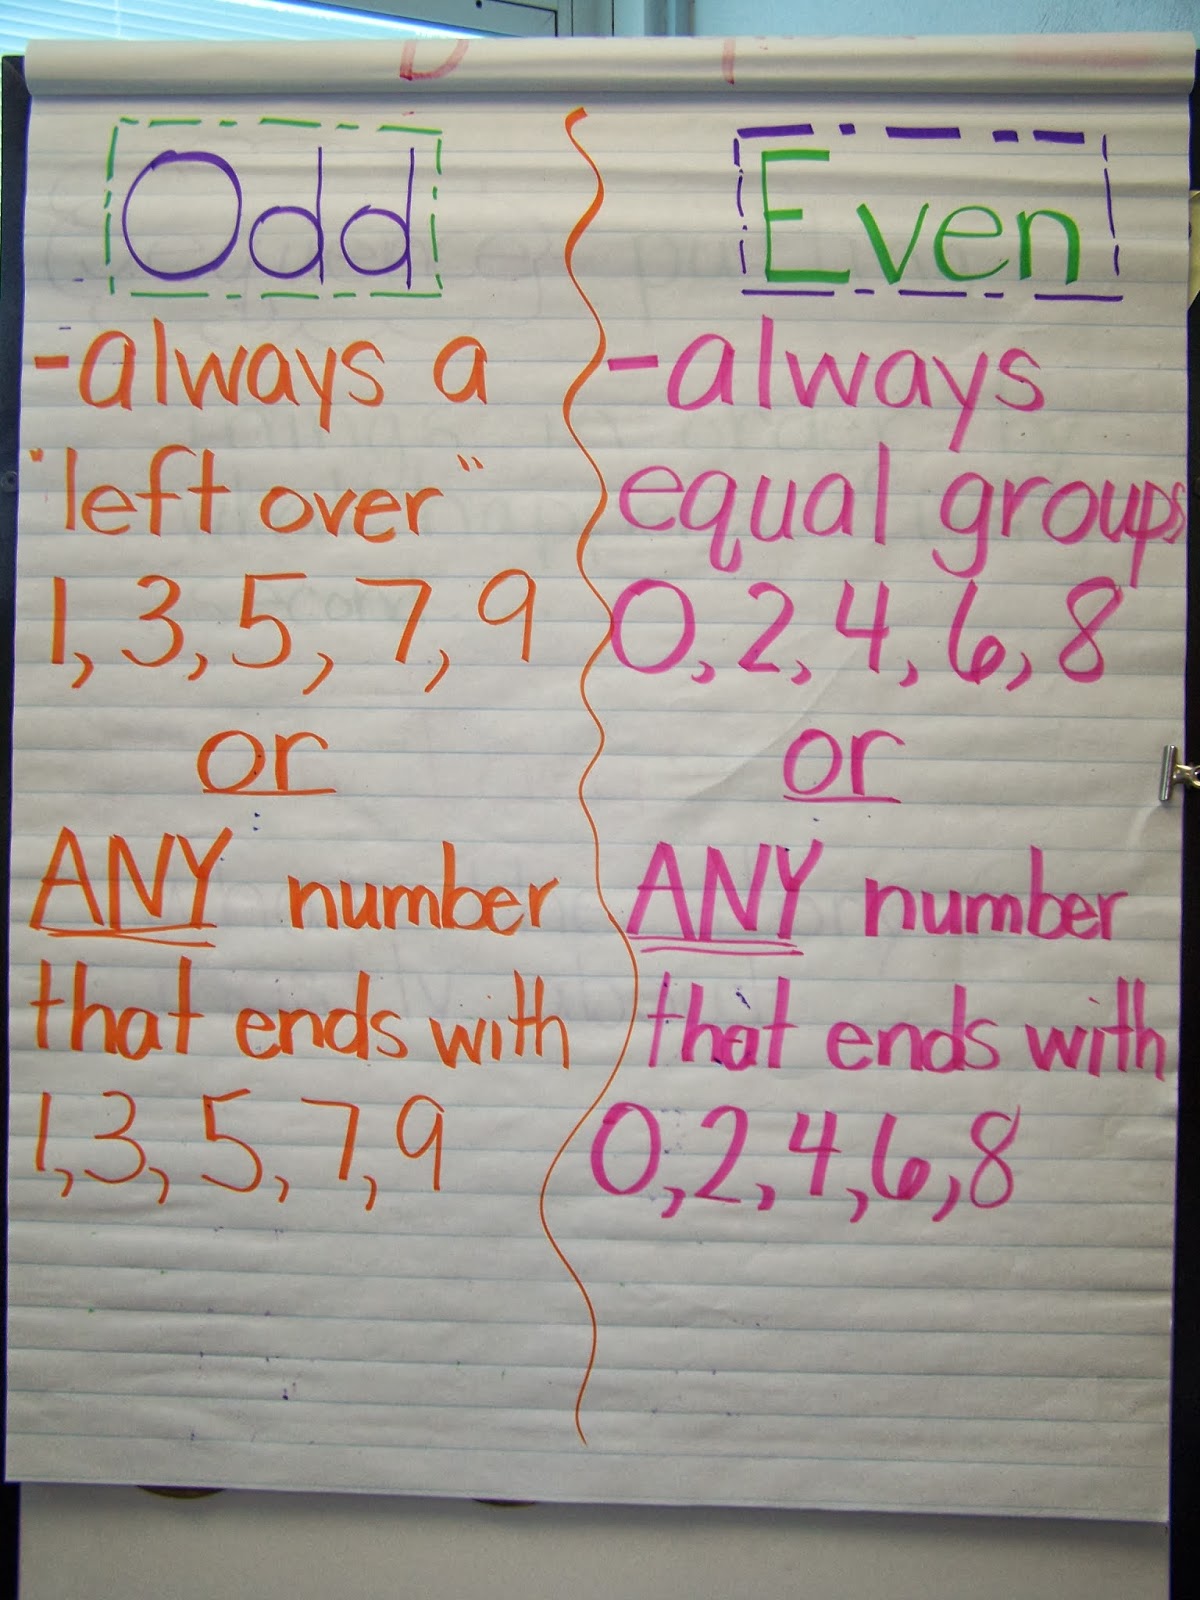 Odd
-always a
"left over"
1, 3, 5, 7, 9
or
ANY number
that ends with
1, 3, 5, 7, 9
Even
-always
equal groups
0, 2, 4, 6, 8
or
ANY number
that ends with
0, 2, 4, 6, 8